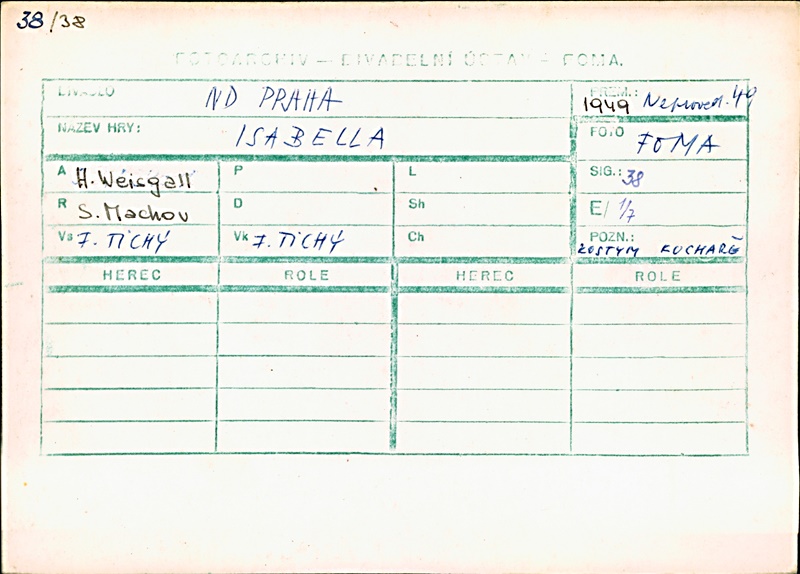 38/38
FOTOARCHIV — DIVADELNÍ ÚSTAV - FOMA.
DIVADLO ND PRAHA
PREM.: 1949 Neproved. 49
NÁZEV HRY: ISABELLA
FOTO FOMA
A H. Weisgall P L SIG.: 38
R S. Machov D Sh E/ 1/7
Vs J. TICHÝ Vk J. TICHÝ Ch POZN.: KOSTYM KUCHAŘE
HEREC ROLE HEREC ROLE